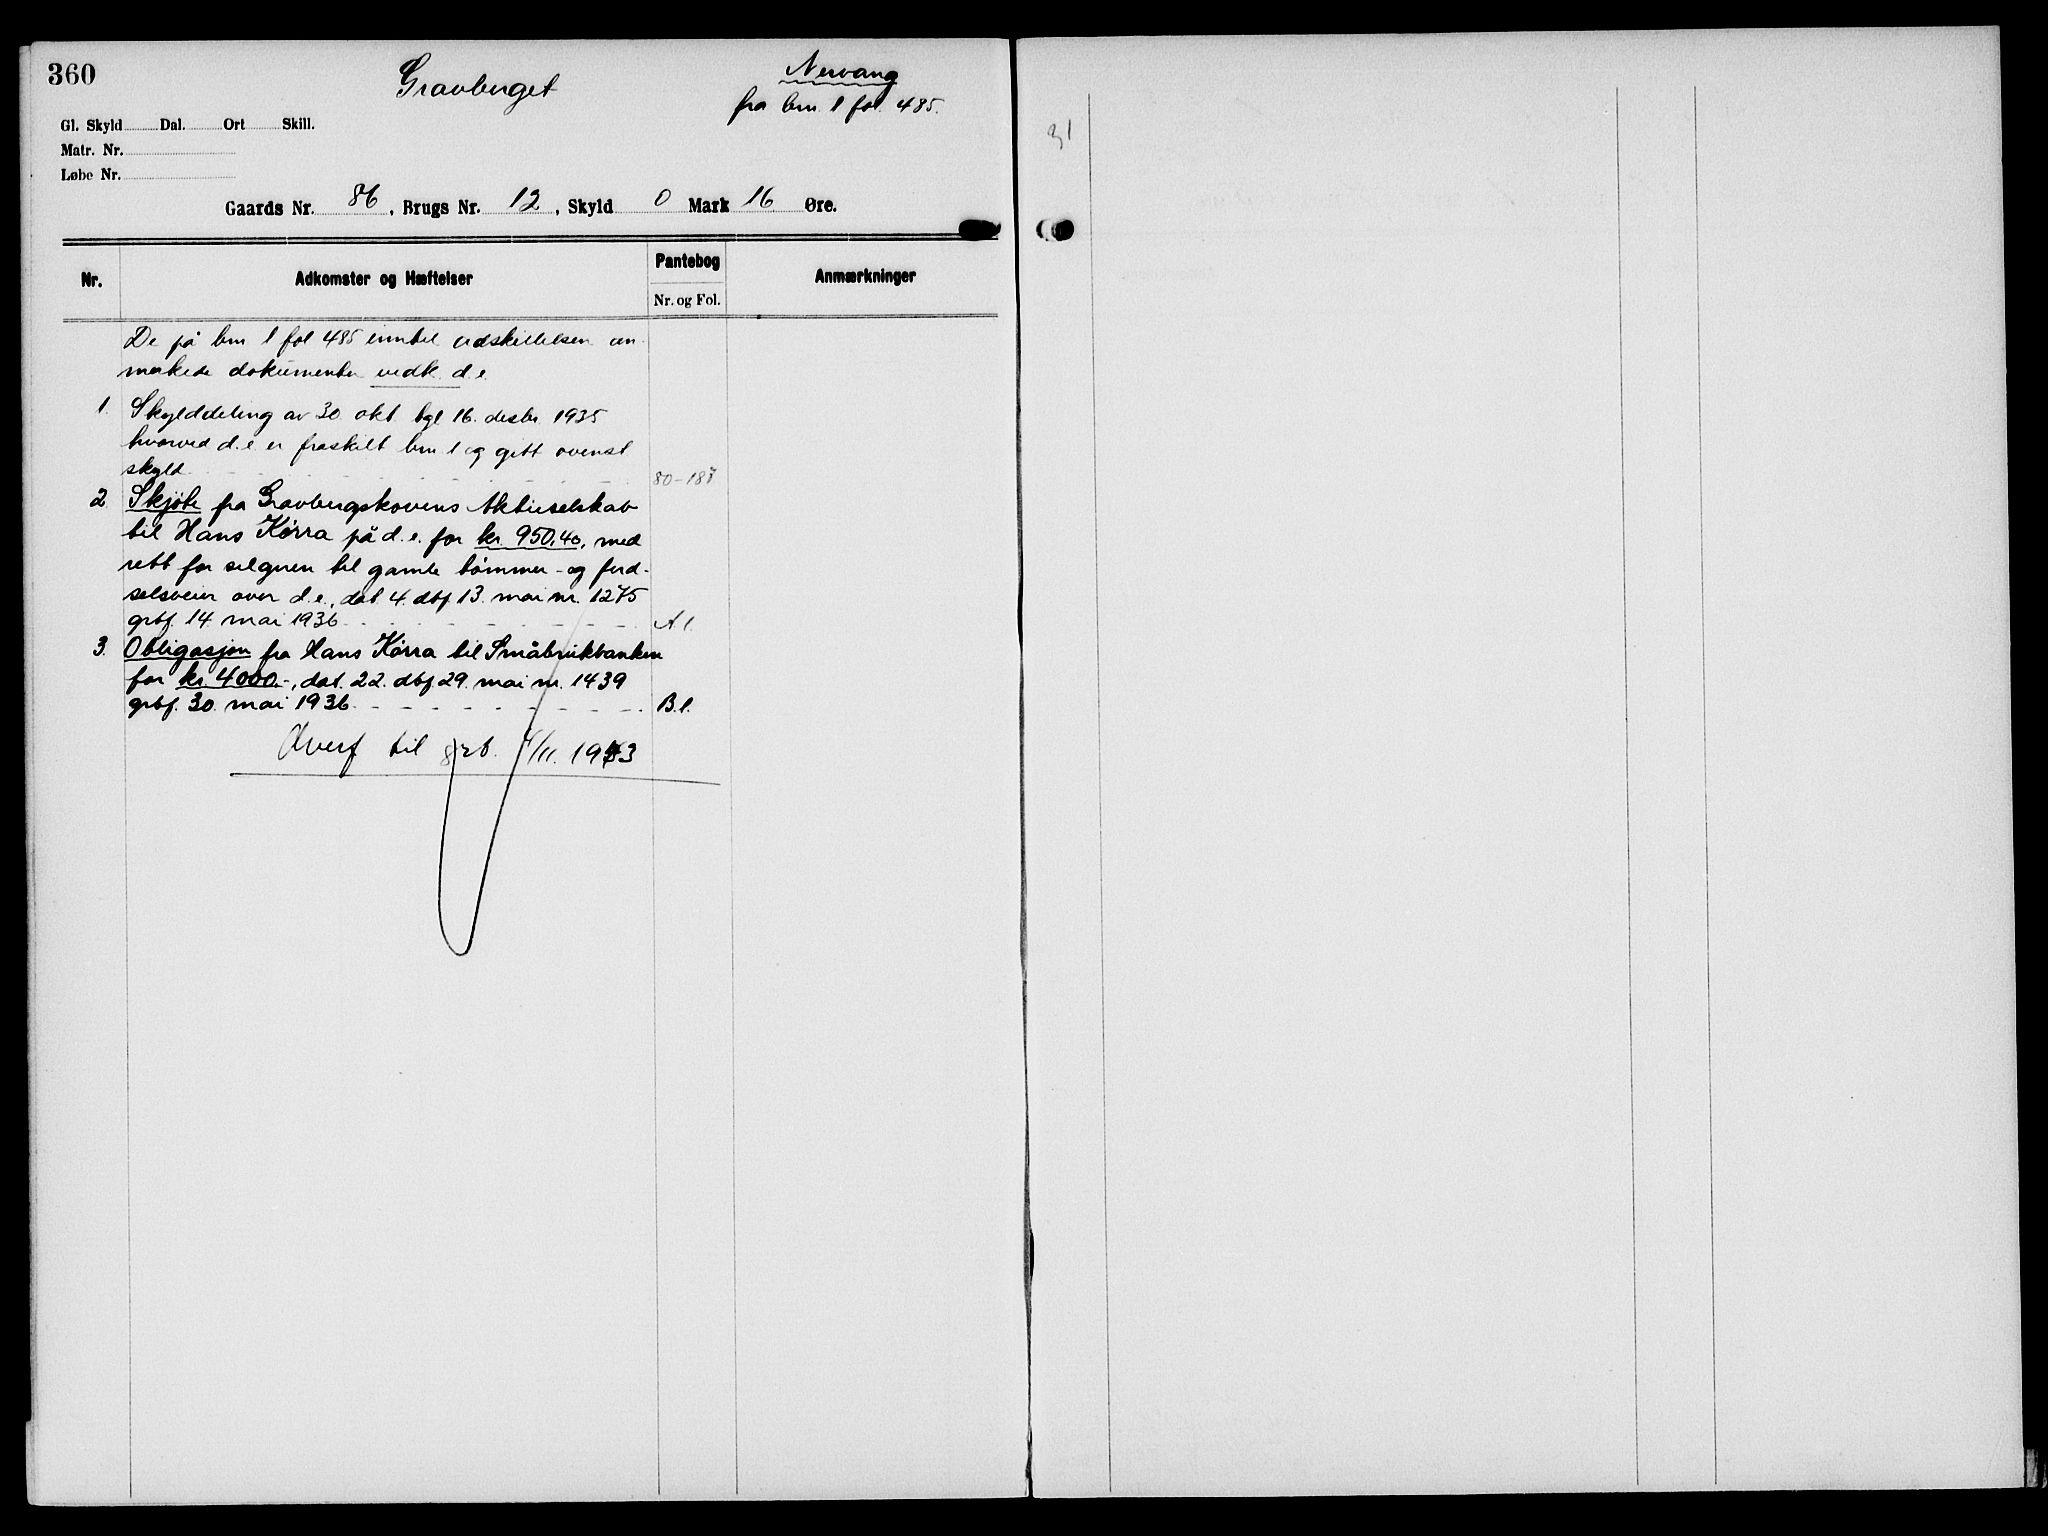 360
Gravberget
Nervang
fra brn. 1 fol. 485.
Gl. Skyld Dal. Ort Skill.
Matr. Nr.
Løbe Nr.
Gaards Nr. 86, Brugs Nr. 12, Skyld 0 Mark 16 Øre.
Nr. Adkomster og Hæftelser Pantebog Anmærkninger
Nr. og Fol.
De på brn 1 fol 485 inntil utskillelsen an-
merkede dokumenter vedk. d.e.
1. Skylddeling av 30 okt. tgl 16. desbr 1935
hvorved d.e. er fraskilt brn 1 og gitt ovenst
skyld 80-187
2 Skjøte fra Gravbergskovens Aktieselskab
til Hans Kørra på d.e. for kr. 950,40, med
rett for selgeren til gamle tømmer- og ferd-
selsveier over d.e., dat. 4. dbf 13. mai nr. 1275
grbf. 14. mai 1936 A.1.
3. Obligasjon fra Hans Kørra til Småbrukbanken
for kr. 4000.-, dat. 22. dbf 29. mai nr. 1439
grbf. 30. mai 1936 B.1.
Overf til grb. /11. 1953
31